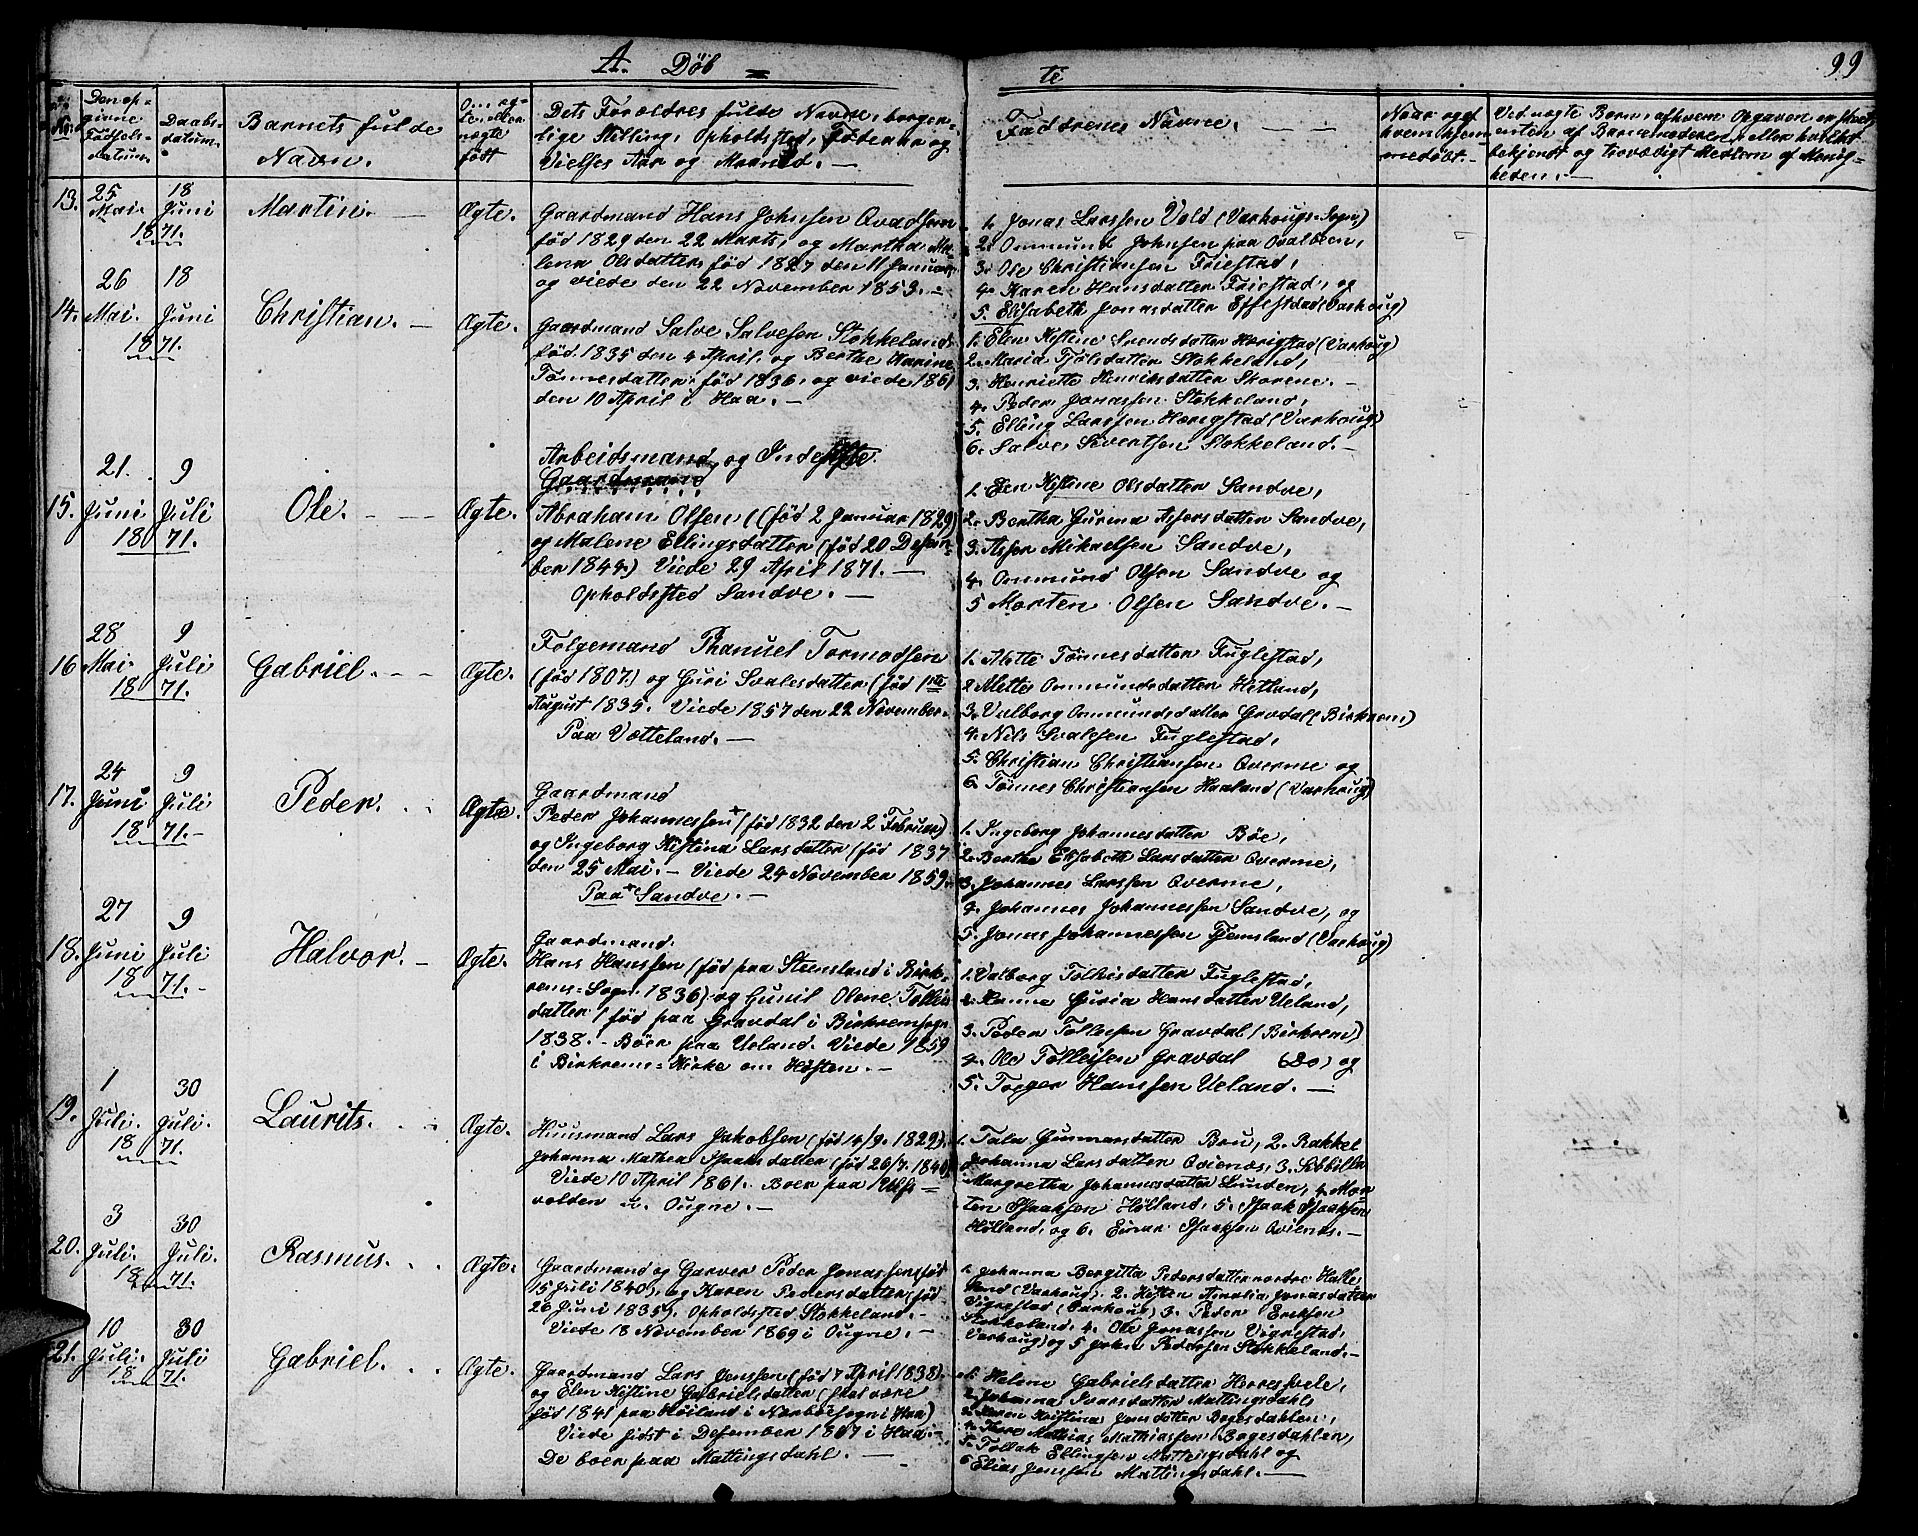 A. Døb = te 99
No.
Den opgivne Fødsels-datum.
Daabs-datum.
Barnets fulde Navn.
Dets Forældres fulde Navne, borger-
lige Stilling, Opholdsted, Fødeaar og
Vielses Aar og Maaned. —
Faddrenes Navne. — —
Naar og af
hvem hjem-
medøbt. —
bekjendt og troværdigt Medlem af Menig-
heden. —
13.
25 Mai. 1871.
18 Juni
Martin. —
Ægte.
Gaardmand Hans Johnsen Qvadsem
født 1829 den 22 Marts, og Martha Ma-
lena Olsdatter, fød 1827 den 11 Januar,
og viede den 22 November 1853. —
1. Jonas Larssen Vold (Varhougs-Sogn)
2. Ommund Johnsen paa Qvalbeen,
3. Ole Christiansen Friestad,
4. Karen Hansdatter Friestad, og
5. Elisabeth Jonasdatter (Varhoug)
14.
26 Mai. 1871.
18 Juni
Christian. —
Ægte.
Gaardmand Salve Salvesen Stokkeland,
fød 1835 den 4 April, og Berthe Karine
Tønnesdatter, fød 1836, og viede 1861
den 10 April i Haa. —
1. Elen Kistine Svendsdatter (Varhoug)
2. Maria Stokkeland,
3. Henriette Henriksdatter Skorene. —
4. Peder Jonassen Stokkeland,
5. Elling Larssen (Varhoug)
6. Salve Sivertsen Stokkeland. —
15.
21. Juni 1871.
9 Juli
Ole. — —
Ægte.
Arbeidsmand og
Gaardmand
Abraham Olsen (fød 2 Januar 1829)
og Malene Ellingsdatter (fød 20 Desem-
ber 1844) Viede 29 April 1871. —
Opholdsted Sandve. —
1. Elen Kistine Olsdatter Sandve,
2. Bertha Gurina Assersdatter Sandve,
3. Asser Mikaelsen Sandve,
4. Ommund Olsen Sandve og
5 Morten Olsen Sandve. —
16
28 Mai. 1871.
9 Juli
Gabriel. — —
Ægte.
Følgemand Thanuel Tormodsen
(fød 1807) og Guri Svalesdatter (fød 1ste
August 1835. Viede 1857 den 22 November.
Paa Vætteland. —
1. Mette Tønnesdatter Fuglestad,
2 Mettea Ommundsdatter Hetland,
3. Valborg Ommundsdatter Gravdal (Birkrem)
4. Nils Svalesen Fuglestad,
5. Christian Christiansen Qverme og
6. Tønnes Christiansen Haaland (Varhoug)
17.
24 Juni 1871. —
9 Juli
Peder. . .
Ægte.
Gaardmand
Peder Johannessen (fød 1832 den 2 Februar)
og Ingeborg Kistina Larsdatter (fød 1837
den 25 Mai. — Viede 24 November 1859.
Paa Sandve. —
1. Ingeborg Johannesdatter Bøe,
2. Berthe Elisabeth Larsdatter Qverme,
3. Johannes Larssen Qverme,
4. Johannes Johannessen Sandve, og
5. Jonas Johannessen Tjemsland (Varhoug)
18.
27 Juni 1871. —
9 Juli
Halvor. —
Ægte.
Gaardmand.
Hans Hanssen (fød paa Steensland i Birk-
rems-Sogn 1836) og Gunil Olene Tollis
datter, fød paa Gravdal i Birkremsogn
1838. — Boer paa Ueland. Viede 1859
i Birkrems-Kirke om Høsten. —
1. Valborg Tollisdatter Fuglestad,
2. Hanna Guria Hansdatter Ueland,
3. Peder Tolleisen Gravdal (Birkrem)
4. Ole Tolleisen Gravdal (do) og
5. Torger Hanssen Ueland. —
19.
1 Juli. 1871.
30 Juli.
Laurits. . .
Ægte.
Huusmand Lars Jakobsen (fød 14/9. 1829),
Johanna Mathea Isaaksdatter (fød 26/7. 1840)
Viede 10 April 1861. Boer paa
volden u. Ougne. —
1. Tala Gunnarsdatter Bru, 2. Rakkel
Johanna Larsdatter Qvienæs, 3. Sibbille
Margretha Johannesdatter Lunden, 4. Mor-
ten Isaaksen Hølland, 5. Isaak Isaaksen
Hølland, og 6. Einar Isaaksen Qvienæs. —
20.
3 Juli. 1871.
30 Juli.
Rasmus. . .
Ægte.
Gaardmand og Garver Peder Jonassen (fød
15 Juli 1840), og Karen Pedersdatter (fød
26 Juni 1835), Opholdsted Stokkeland. —
Viede 18 November 1869 i Ougne. —
1. Johanna Bergitta Pedersdatter nordre Halle
land (Varhoug). 2. Kisten Amalia Jonasdatter
Vigrestad (Varhoug) 3. Peder Eriksen
Stokkeland, 4. Ole Jonassen Vigrestad,
Varhoug) og 5 John Pedersen Stokkeland. —
21.
10 Juli. 1871.
30 Juli
Gabriel. . .
Ægte.
Gaardmand Lars Jenssen (fød 7 April 1838)
og Elen Kistine Gabrielsdatter (skal være
fød 1841 paa Høiland i Nærbøsogn i Haa)
Viede sidst i Desember 1867 i Haa. —
De boer paa Mattingsdahl. —
1. Helene Gabrielsdatter
2. Johanna Ivarsdatter Mattingsdahl,
3. Karen Kristina Jonsdatter Bogesdahlen,
4. Mathias Mathiassen (Bogesdahlen,
5. Tollak Ellingsen Mattingsdahl og
6 Elias Jenssen Mattingsdahl. —